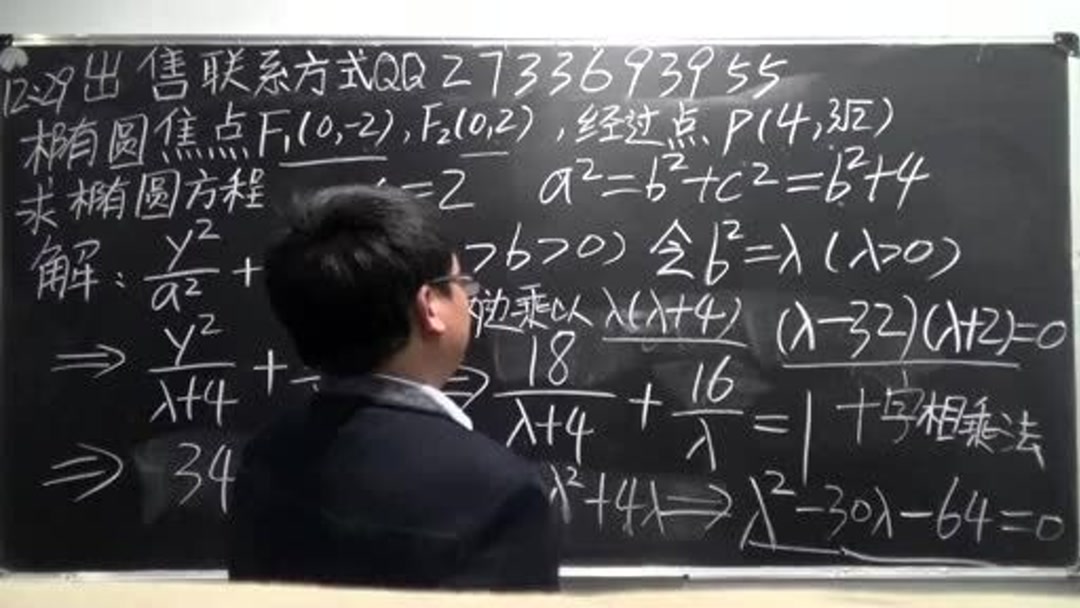 12:29出售联系方式QQ2733693955
椭圆焦点F₁(0,-2),F₂(0,2),经过点P(4,3√2)
求椭圆方程 =2 a²=b²+c²=b²+4
解: y²/a² + >b>0) 令b²=λ(λ>0)
边乘以λ(λ+4) (λ-32)(λ+2)=0
⇒ y²/(λ+4) + ⇒ 18/(λ+4) + 16/λ =1 十字相乘法
⇒ 34 λ²+4λ⇒λ²-30λ-64=0